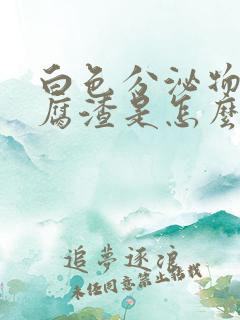 白色分泌物
腐渣是怎麼
追夢逐浪
未经同意禁止搬栽